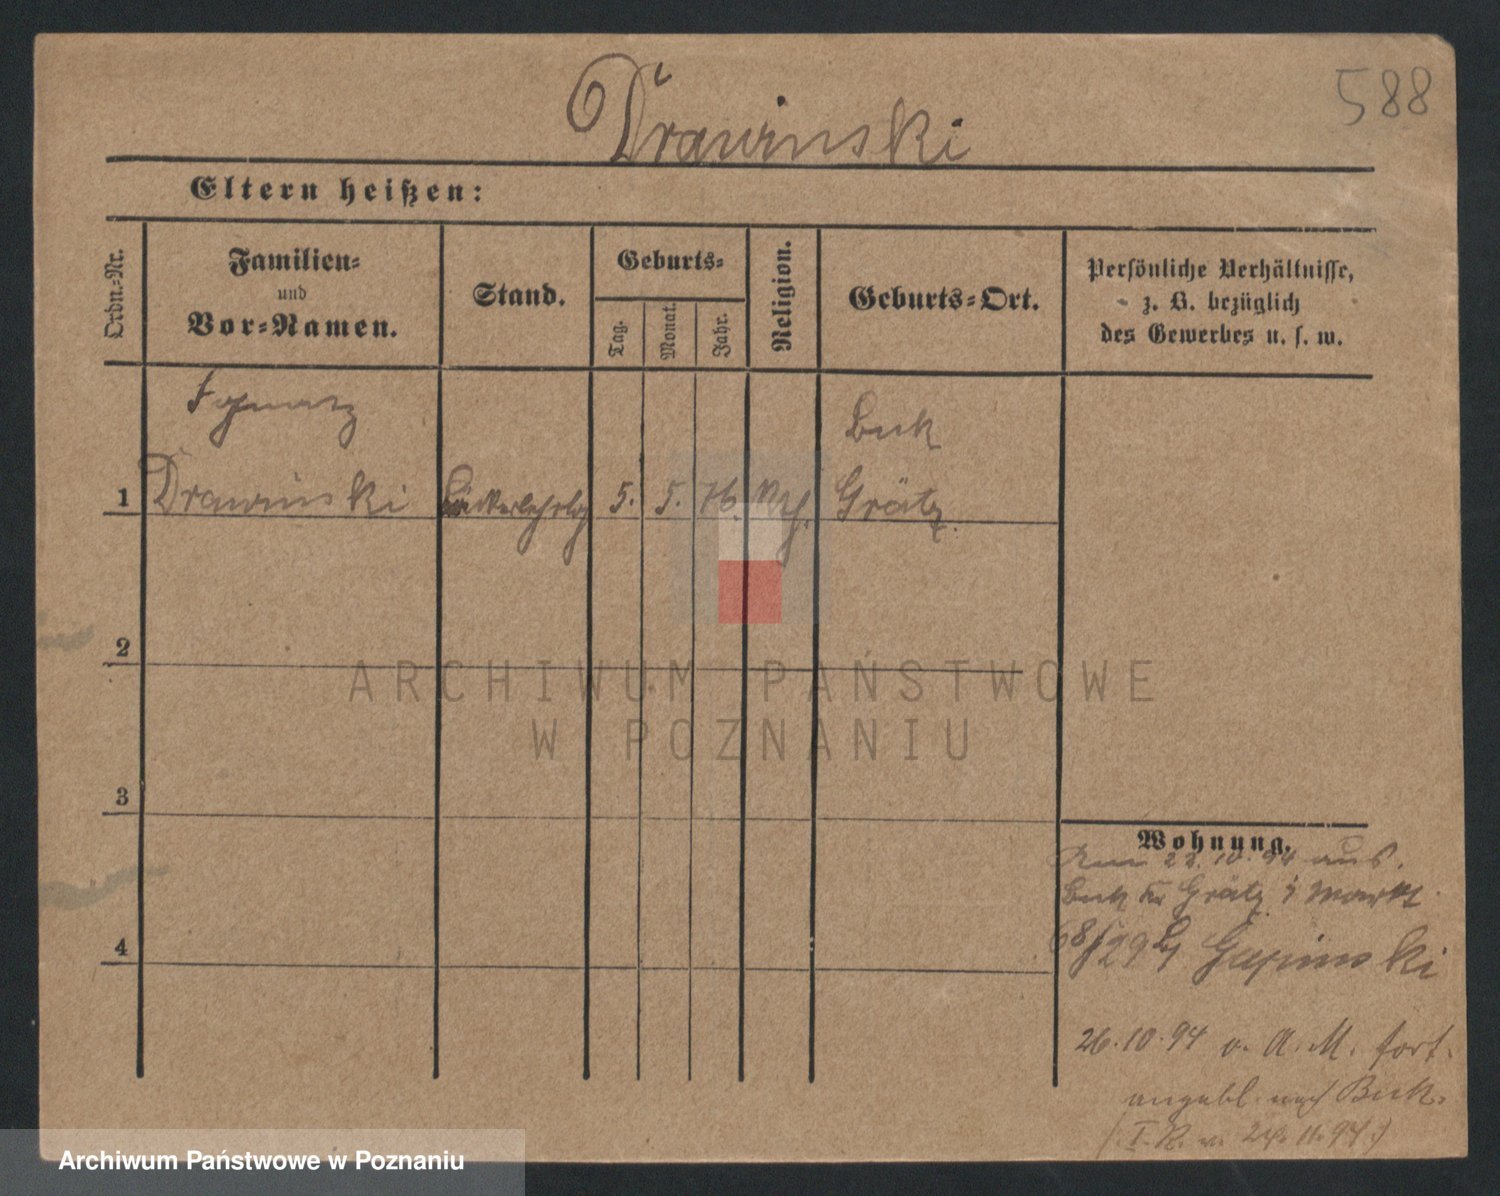 588
Drawinski
Eltern heißen:
Ordn.-Nr.
Familien-
und
Vor-Namen.
Stand.
Geburts-
Tag.
Monat.
Jahr.
Religion.
Geburts-Ort.
Persönliche Verhältnisse,
z. B. bezüglich
des Gewerbes u. s. w.
Ignatz
Buk
1 Drawinski Bäckerlehrlg 5. 5. 76. Grätz.
2
3
4
Wohnung.
22.10.94 aus.
Buk Grätz Markt
68/29 Gapinski
26.10.94 o. A. M. fort.
angebl. nach Buk.
(I. R. v. 24.11.94.)
ARCHIWUM PAŃSTWOWE
W POZNANIU
Archiwum Państwowe w Poznaniu